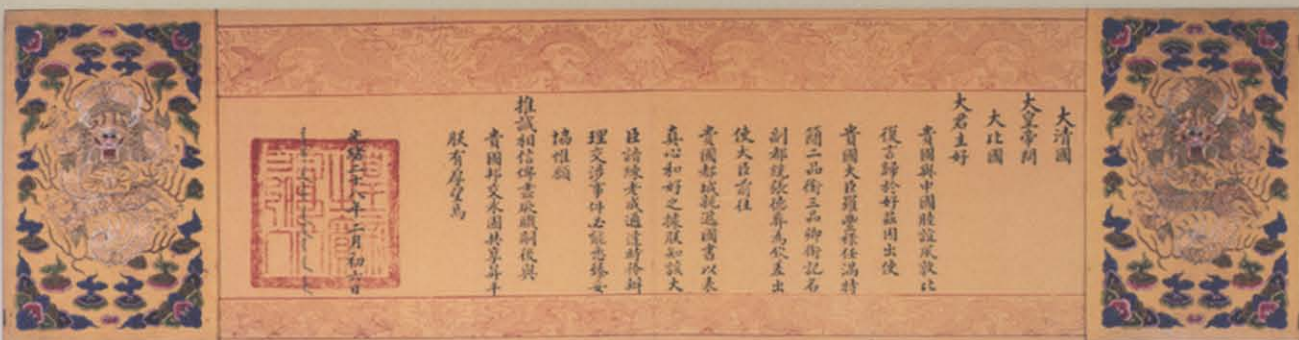 大清國
大皇帝問
大比國
大君主好
貴國與中國睦誼夙敦比
復言歸於好茲因出使
貴國大臣羅豐祿任滿特
簡二品銜三品卿銜記名
副都統張德彝為欽差出
使大臣前往
貴國都城親遞國書以表
真心和好之據朕知該大
臣諳練老成通達時務辦
理交涉事件必能悉臻妥
協惟願
推誠相信俾盡厥職嗣後與
貴國邦交永固共享昇平
朕有厚望焉
光緒二十八年二月初六日